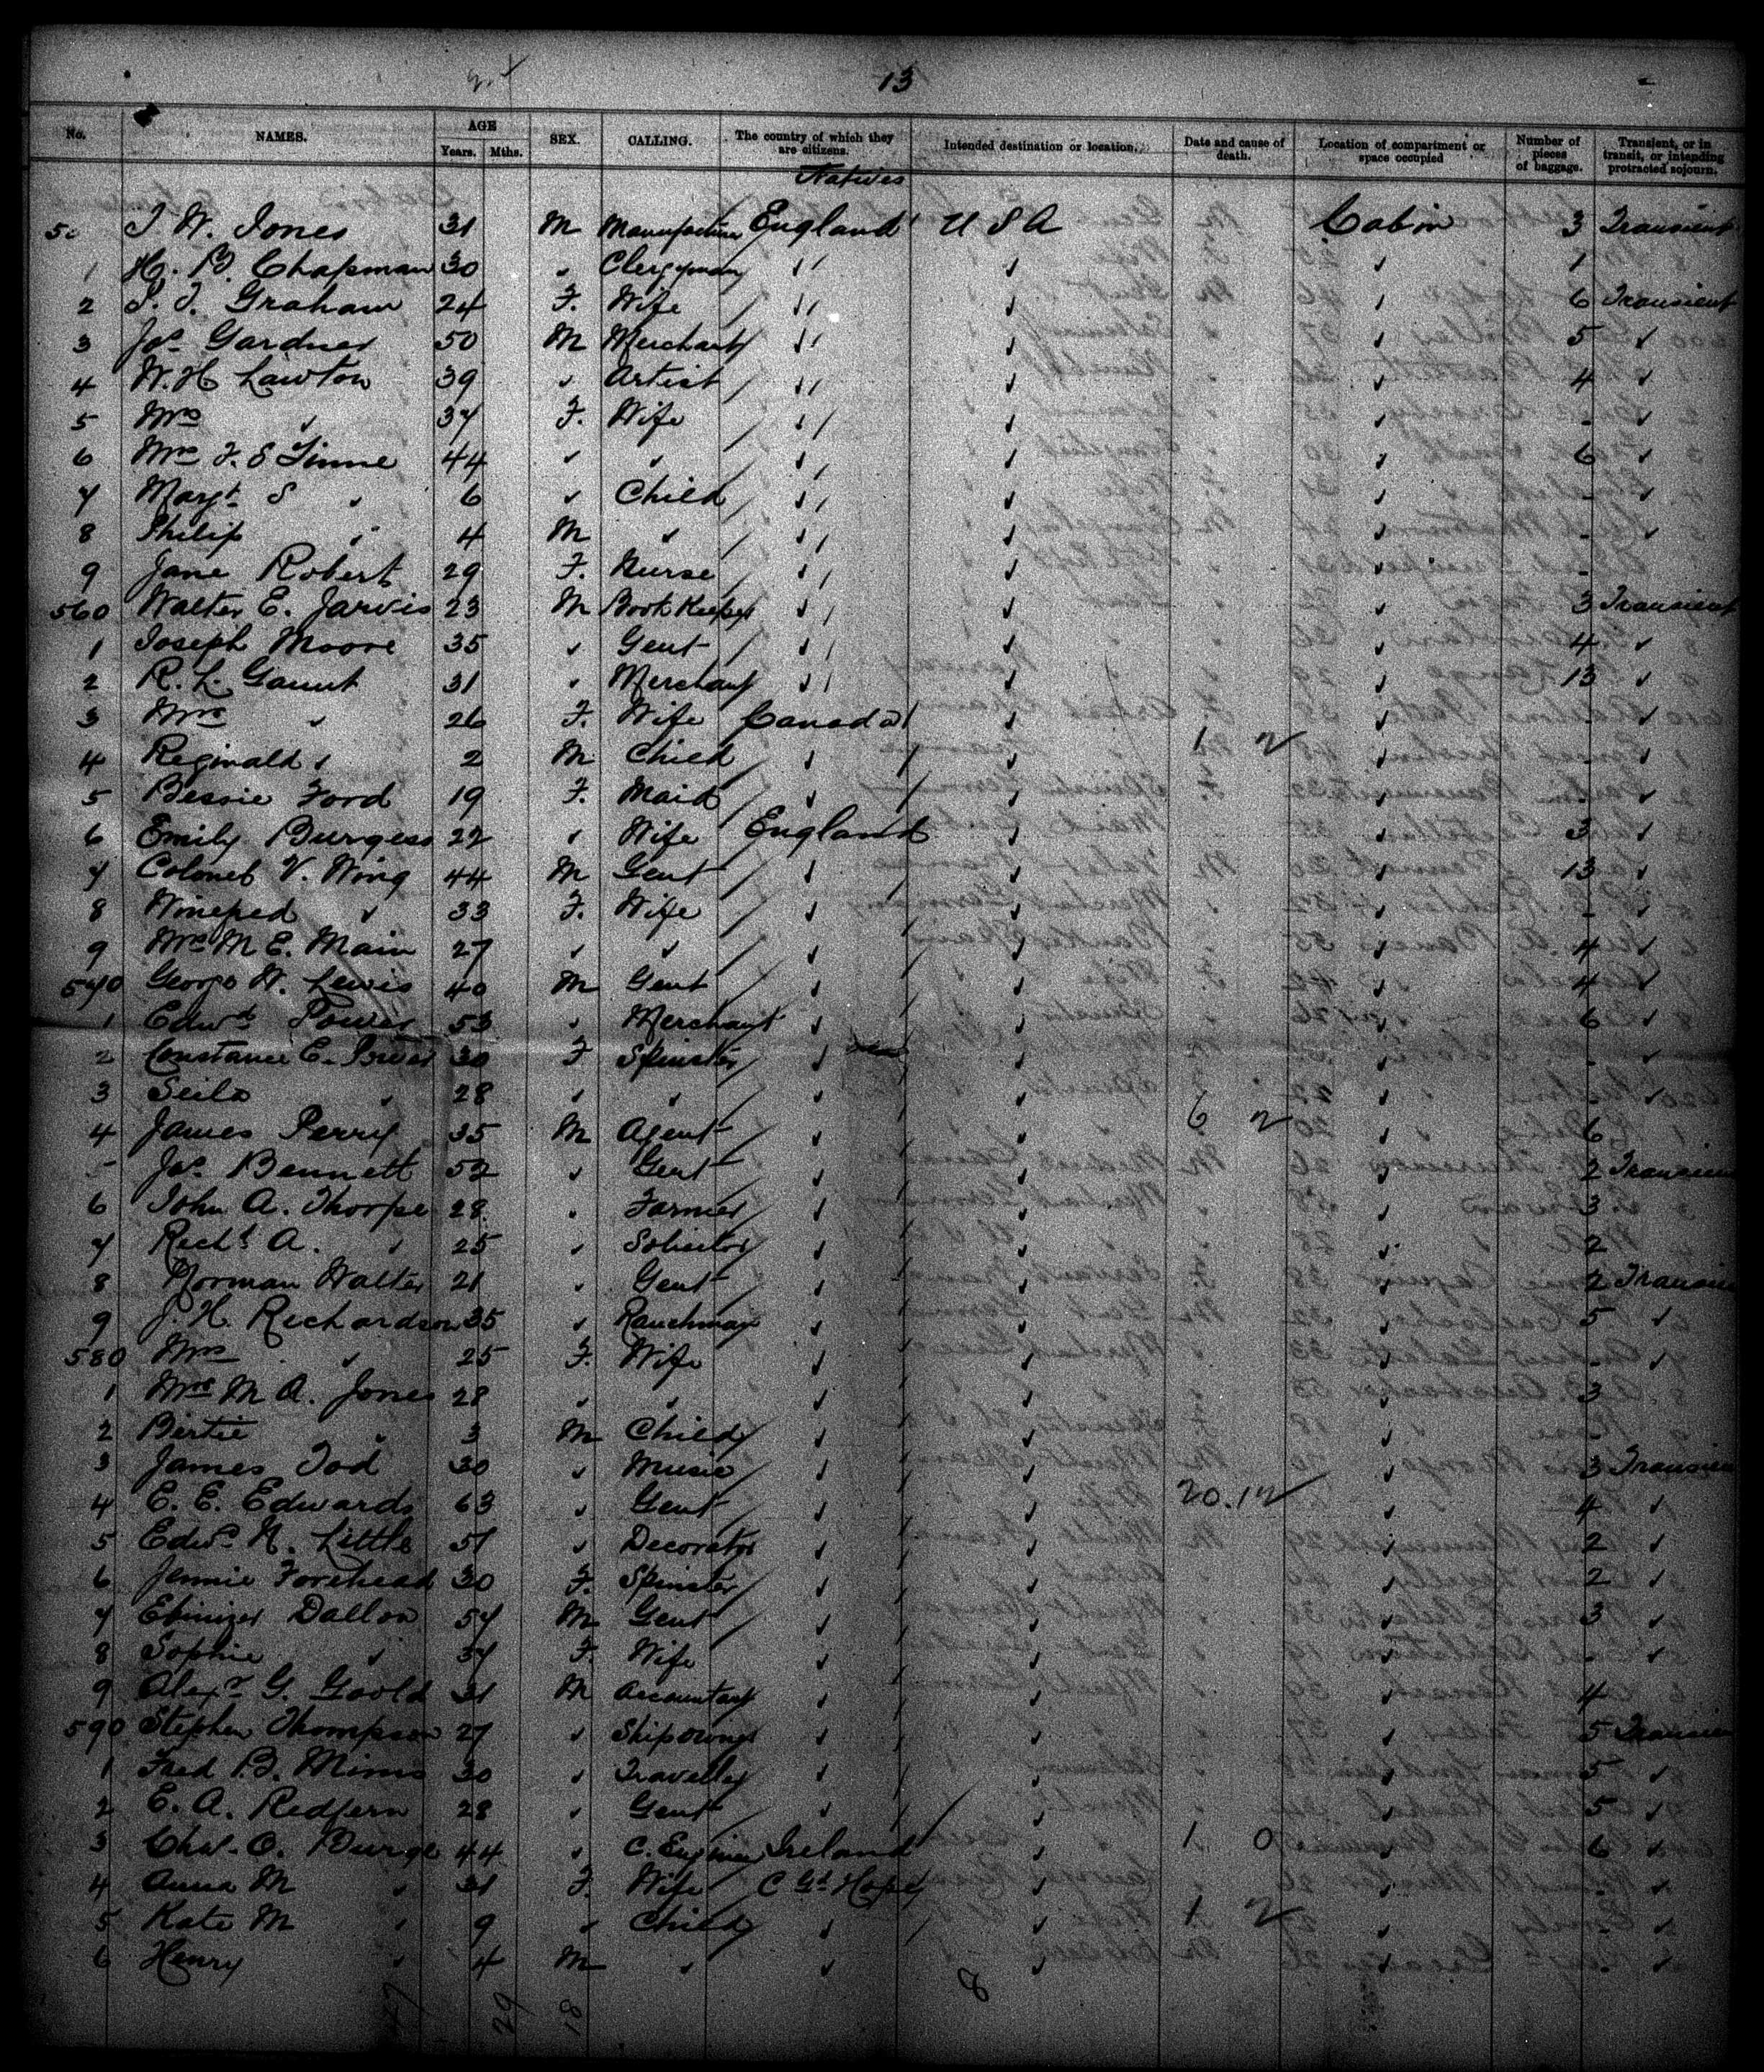 13
No. NAMES. AGE Years. Mths. SEX. CALLING. The country of which they are citizens. Intended destination or location. Date and cause of death. Location of compartment or space occupied Number of pieces of baggage. Transient, or in transit, or intending protracted sojourn.
Natives
J. W. Jones 31 M Manufacturer England U S A Cabin 3 Transient
1 H. B. Chapman 30 " Clergyman " " ✓ ✓ 1
2 Graham 24 F. Wife " ✓ ✓ 6 Transient
3 Jas Gardner 50 M Merchant " ✓ ✓ 5 ✓
4 W. H Lawton 39 ✓ Artist " ✓ ✓ 4 ✓
5 Mrs ✓ 37 F. Wife " ✓ ✓ - ✓
6 Mrs F. S Tinne 44 ✓ ✓ " ✓ ✓ 6 ✓
7 Margt S ✓ 6 ✓ Child " ✓ ✓ - ✓
8 Philip ✓ 4 M ✓ " ✓ ✓ - ✓
9 Jane Robert 29 F. Nurse " ✓ ✓ -
560 Walter E. Jarvis 23 M Book Keeper " ✓ ✓ 3 Transient
1 Joseph Moore 35 ✓ Gent " ✓ ✓ 4 ✓
2 R. L. Gaunt 31 ✓ Merchant " ✓ ✓ 13 ✓
3 Mrs ✓ 26 F. Wife Canada ✓ ✓ - ✓
4 Reginald ✓ 2 M Child ✓ ✓ 1 2 ✓ - ✓
5 Bessie Ford 19 F. Maid ✓ ✓ ✓ - ✓
6 Emily Burgess 22 ✓ Wife England ✓ ✓ 3 ✓
7 Colonel V. Wing 44 M Gent ✓ ✓ ✓ 13 ✓
8 Winefred ✓ 33 F. Wife ✓ ✓ ✓ - ✓
9 Mrs M E. Main 27 ✓ ✓ ✓ ✓ ✓ 4 ✓
570 George W. Lewis 40 M Gent ✓ ✓ ✓ 4 ✓
1 Edwd Power 53 ✓ Merchant ✓ ✓ ✓ 6 ✓
2 Constance E. Power 30 F Spinster ✓ ✓ ✓ - ✓
3 ✓ 28 ✓ ✓ ✓ ✓ ✓ - ✓
4 James Perry 35 M Agent ✓ ✓ 6 2 ✓ 6
5 Jas Bennett 52 ✓ Gent ✓ ✓ ✓ 2 Transient
6 John A. Thorpe 28 ✓ Farmer ✓ ✓ ✓ 3
7 Richd A. ✓ 25 ✓ Solicitor ✓ ✓ ✓ 2
8 Norman Walter 21 ✓ Gent ✓ ✓ ✓ 2 Transient
9 J. H. Richardson 35 ✓ Ranchman ✓ ✓ ✓ 5 ✓
580 Mrs ✓ 25 F. Wife ✓ ✓ ✓ - ✓
1 Mrs M A. Jones 28 ✓ ✓ ✓ ✓ ✓ 3
2 Bertie ✓ 3 M Child ✓ ✓ ✓ -
3 James Tod 30 ✓ Music ✓ ✓ ✓ 3 Transient
4 E. E. Edwards 63 ✓ Gent ✓ ✓ 20.12 ✓ 4 ✓
5 Edwd N. Little 51 ✓ Decorator ✓ ✓ ✓ 2 ✓
6 Jennie Forehead 30 F. Spinster ✓ ✓ ✓ 2 ✓
7 Ebinizer Dallon 57 M Gent ✓ ✓ ✓ 3 ✓
8 Sophie ✓ 37 F. Wife ✓ ✓ ✓ - ✓
9 Alexr G. Goold 31 M Accountant ✓ ✓ ✓ 4
590 Stephen Thompson 27 ✓ Shipowner ✓ ✓ ✓ 5 Transient
1 Fred B. Mims 30 ✓ Traveller ✓ ✓ ✓ 5 ✓
2 E. A. Redfern 28 ✓ Gent ✓ ✓ ✓ 5 ✓
3 Chas. O. Burge 44 ✓ C. Engineer Ireland ✓ 1 0 ✓ 6 ✓
4 Anna M ✓ 31 F. Wife C Gd Hope ✓ ✓ - ✓
5 Kate M ✓ 9 ✓ Child ✓ ✓ 1 2 ✓ - ✓
6 Henry ✓ 4 M ✓ ✓ ✓ ✓ - ✓
29 18 8